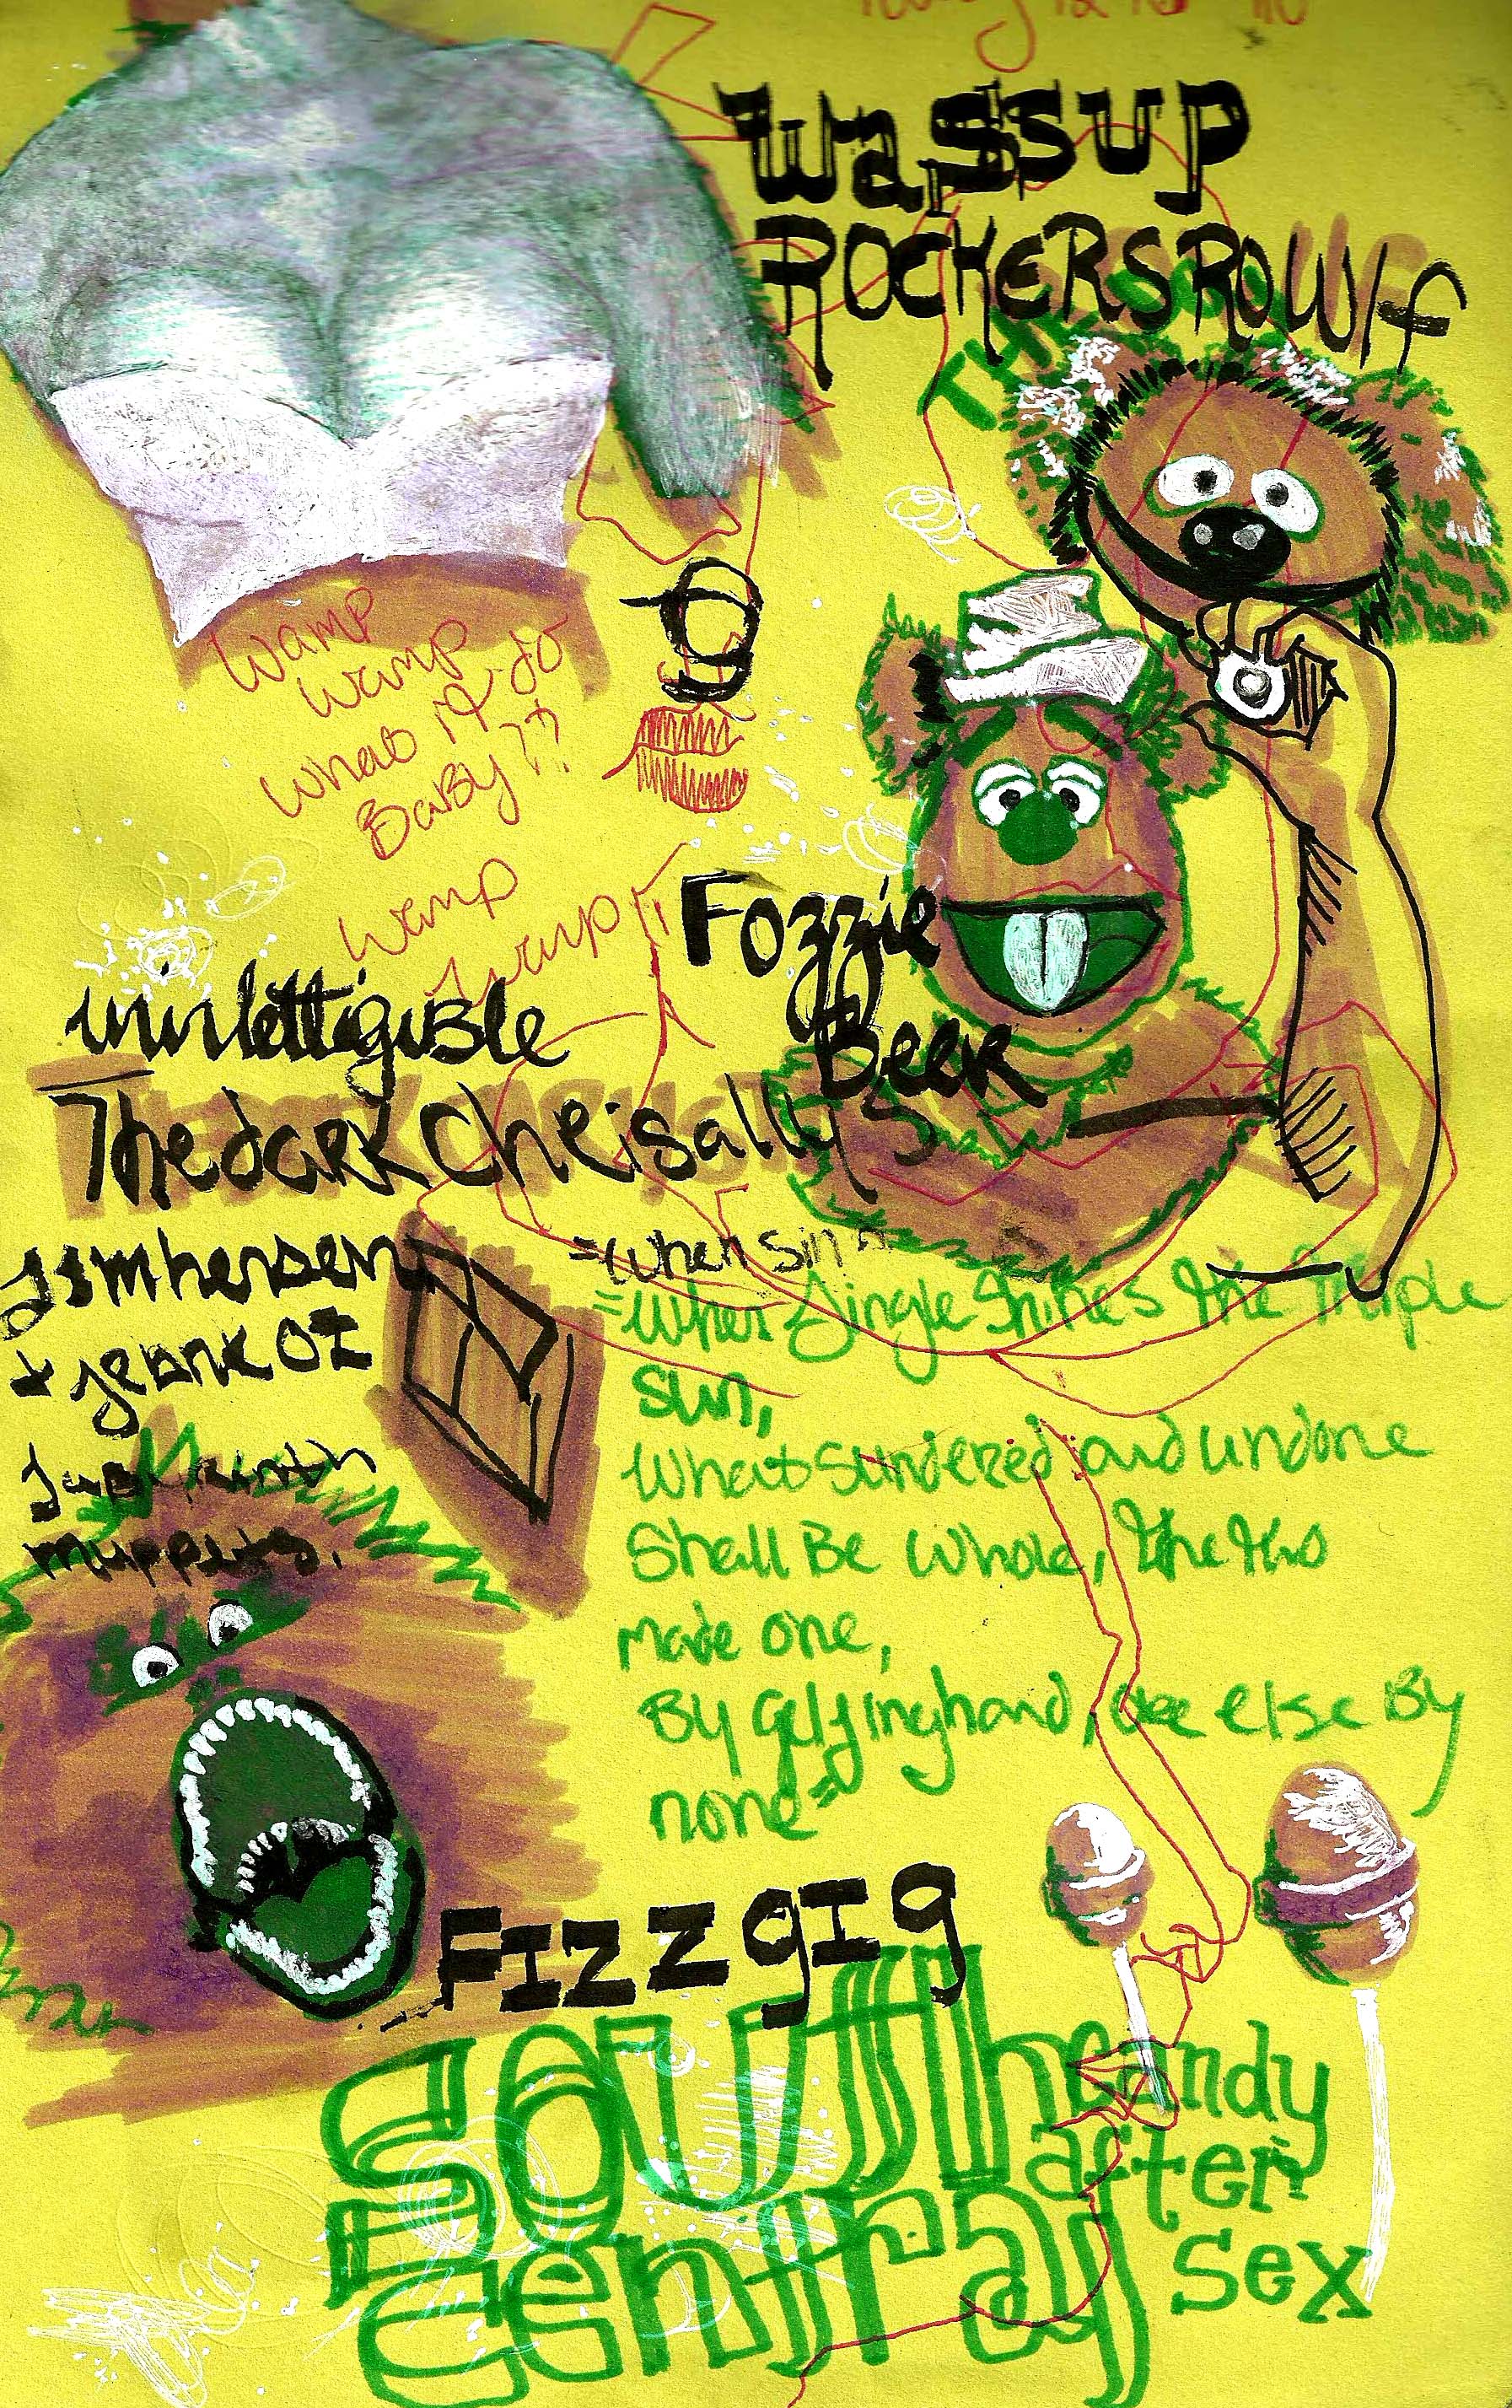 Wassup
ROCKERS ROWLF
THE
Wamp
wamp
what it do
BaBy ??
wamp
wamp
Fozzie
Beer
unnlettigiBle
The dark Chrisally's
Jimhensen
+ jernk OZ
muppets.
=when sin
=When Single Shines the Triple
Sun,
What Sundered and undone
Shall Be Whole, The two
made one,
By gelfling hand, oe else By
none=
FIZZgIg
South
Central
candy
after
sex